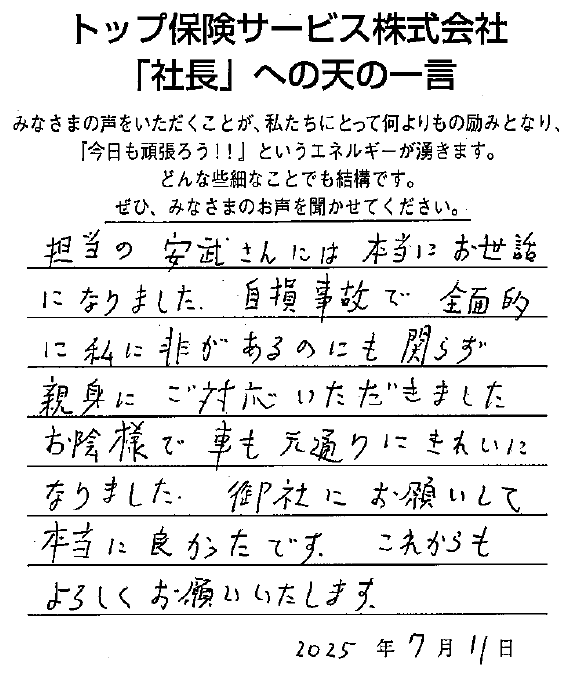 トップ保険サービス株式会社
「社長」への天の一言
みなさまの声をいただくことが、私たちにとって何よりもの励みとなり、
『今日も頑張ろう!!』というエネルギーが湧きます。
どんな些細なことでも結構です。
ぜひ、みなさまのお声を聞かせてください。
担当の 安武さんには 本当にお世話
になりました. 自損事故で 全面的
に私に非があるのにも 関らず
親身に ご対応いただきました
お陰様で 車も元通りにきれいに
なりました. 御社にお願いして
本当に良かったです. これからも
よろしくお願いいたします.
2025 年 7 月 11 日